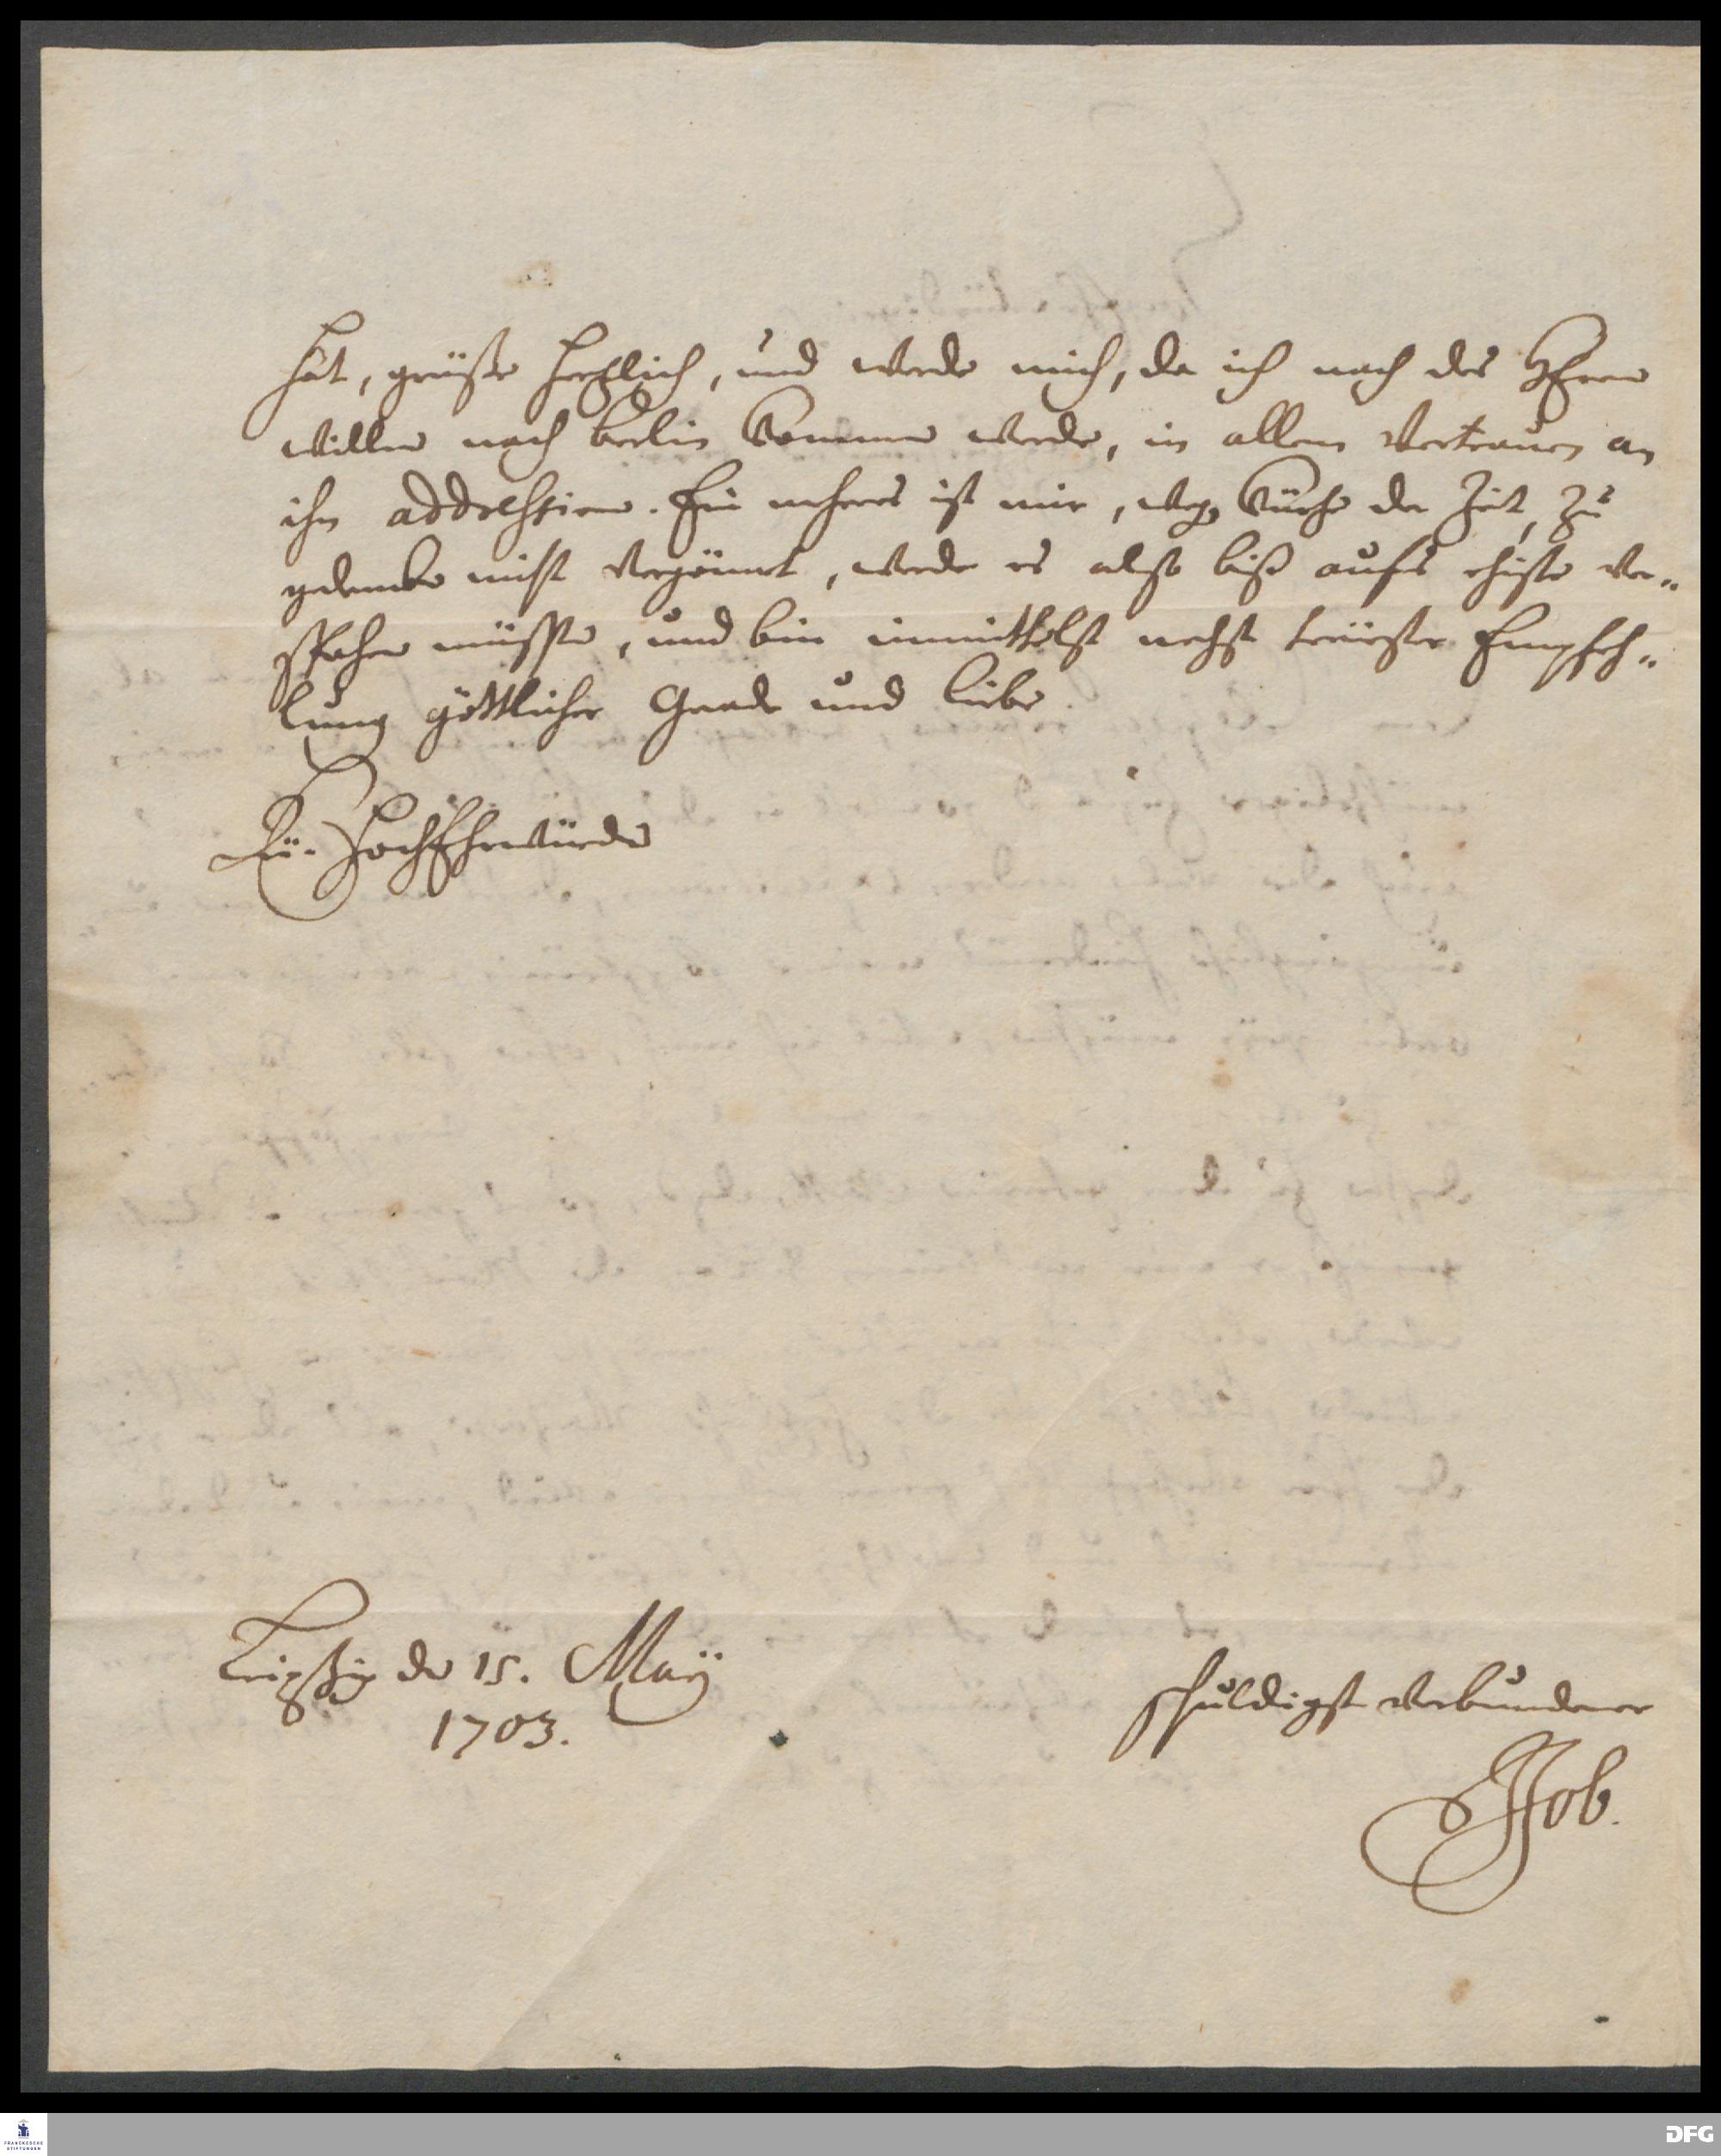 hat, grüße hertzlich, und werde mich, da ich nach des HErrn
willen nach Berlin kommen werde, in allem Vertrauen an
ihn addressiren. Ein mehers ist mir, weg. Kürtze der Zeit, zu
gedencken nicht vergönnet, werde es also biß aufs ehiste ver-
spahren müssen, und bin inmittelst nechst treüester Empfeh-
lung göttlicher Gnade und Liebe
Eü. HochEhrwürden
Leipzig den 15. Maÿ
1703.
schuldigst verbundener
Job.
FRANCKESCHE
STIFTUNGEN
DFG